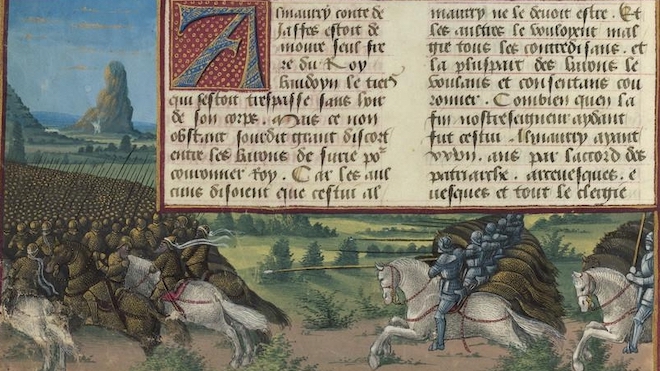 Almaurry conte de
Jaffes estoit de
moure seul fre
re du Roy
Baudoyn le tiers
qui sestoit trespasse sans hoir
de son corps. Mais ce non
obstant sourdit grant discort
entre les barons de surie por
couronner roy. Car les aul
cuns disoient que cestui al
maurry ne le devoit estre. Et
les aultres le vouloyent mal
gre tous les contredisans. et
la pluspart des barons le
voulans et consentans cou
ronner. Combien quen la
fin nostreseigneur aydant
fut cestui Almaurry ayant
ans par laccord des
patriarche. arcevesques. e
vesques et tout le clergie